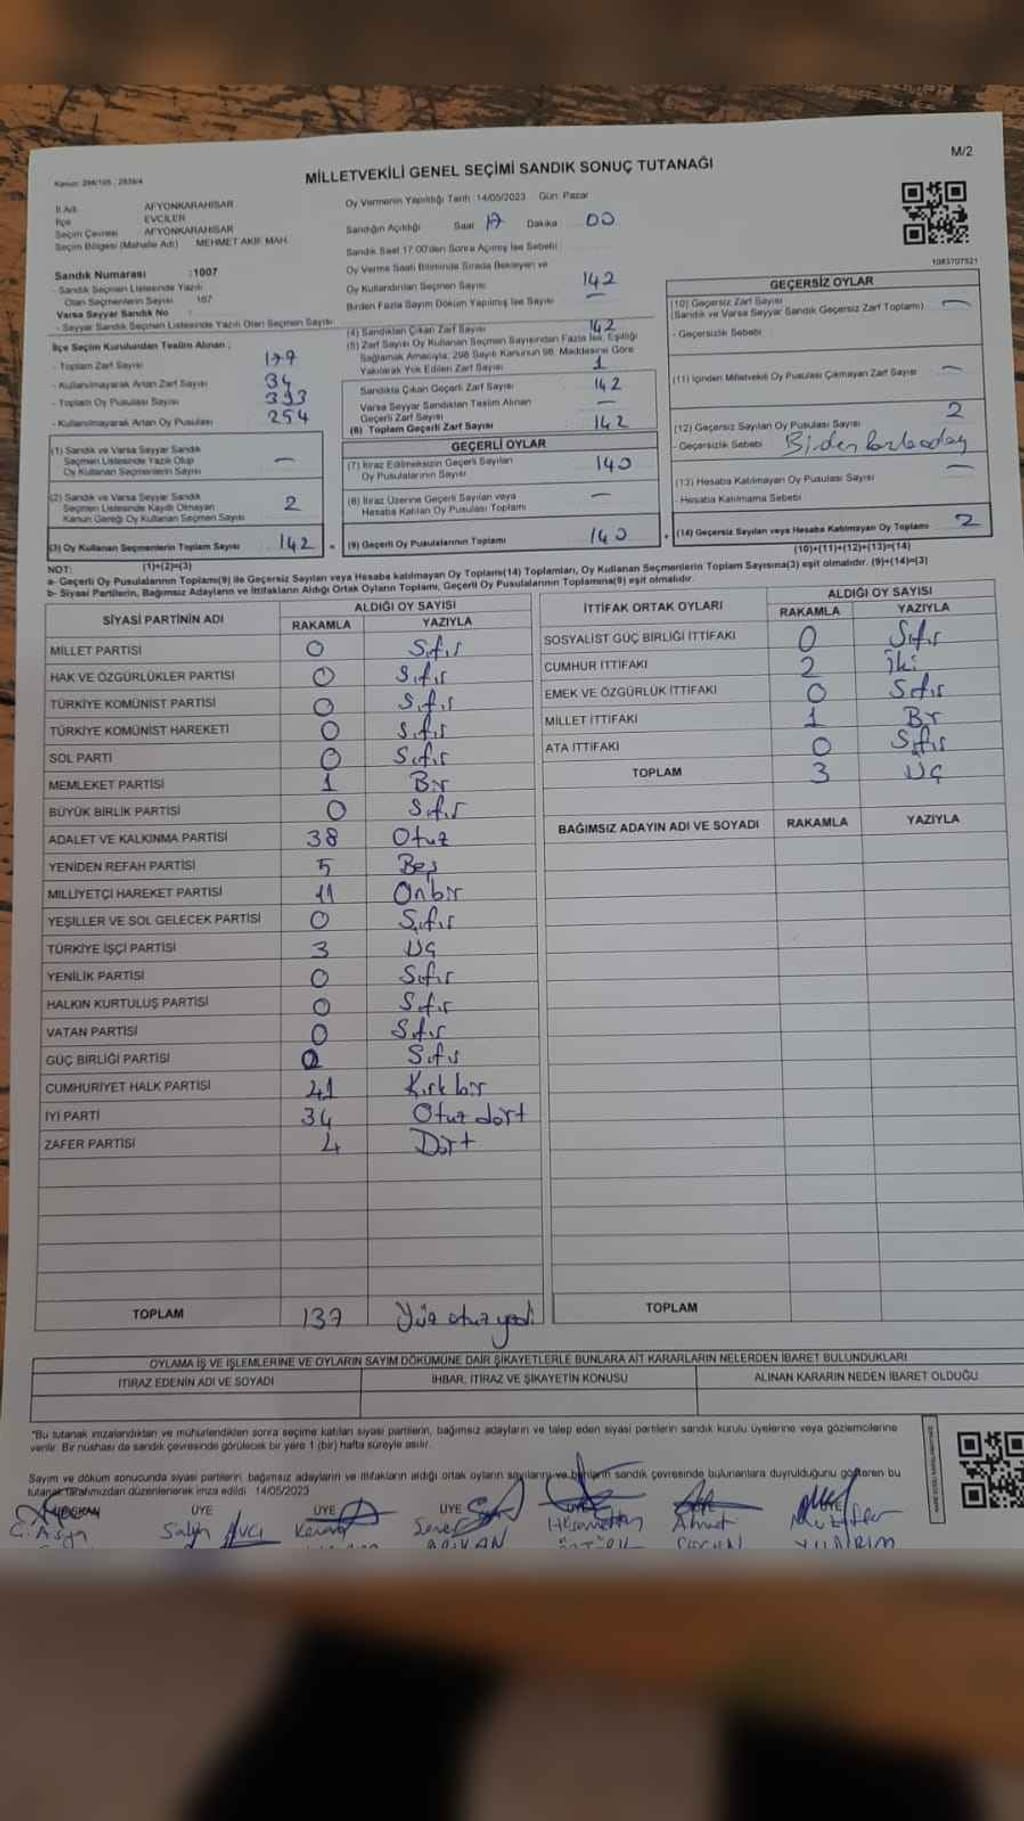 M/2
MİLLETVEKİLİ GENEL SEÇİMİ SANDIK SONUÇ TUTANAĞI
İl Adı AFYONKARAHİSAR
İlçe EVCİLER
Seçim Çevresi AFYONKARAHİSAR
Seçim Bölgesi (Mahalle Adı) MEHMET AKİF MAH.
Sandık Numarası :1007
- Sandık Seçmen Listesinde Yazılı
Olan Seçmenlerin Sayısı 167
Varsa Seyyar Sandık No :
- Seyyar Sandık Seçmen Listesinde Yazılı Olan Seçmen Sayısı
İlçe Seçim Kurulundan Teslim Alınan ;
- Toplam Zarf Sayısı 179
- Kullanılmayarak Artan Zarf Sayısı 34
- Toplam Oy Pusulası Sayısı 393
- Kullanılmayarak Artan Oy Pusulası 254
(1) Sandık ve Varsa Seyyar Sandık
Seçmen Listesinde Yazılı Olup
Oy Kullanan Seçmenlerin Sayısı —
(2) Sandık ve Varsa Seyyar Sandık
Seçmen Listesinde Kaydı Olmayan
Kanun Gereği Oy Kullanan Seçmen Sayısı 2
(3) Oy Kullanan Seçmenlerin Toplam Sayısı 142
(1)+(2)=(3)
Oy Vermenin Yapıldığı Tarih :14/05/2023 Gün: Pazar
Sandığın Açıldığı Saat 17 Dakika 00
Sandık Saat 17:00'den Sonra Açılmış İse Sebebi :
Oy Verme Saati Bitiminde Sırada Bekleyen ve
Oy Kullandırılan Seçmen Sayısı 142
Birden Fazla Sayım Döküm Yapılmış İse Sayısı —
(4) Sandıktan Çıkan Zarf Sayısı 142
(5) Zarf Sayısı Oy Kullanan Seçmen Sayısından Fazla İse, Eşitliği
Sağlamak Amacıyla; 298 Sayılı Kanunun 98. Maddesine Göre
Yakılarak Yok Edilen Zarf Sayısı 1
Sandıkta Çıkan Geçerli Zarf Sayısı 142
Varsa Seyyar Sandıktan Teslim Alınan
Geçerli Zarf Sayısı —
(6) Toplam Geçerli Zarf Sayısı 142
GEÇERLİ OYLAR
(7) İtiraz Edilmeksizin Geçerli Sayılan
Oy Pusulalarının Sayısı 140
(8) İtiraz Üzerine Geçerli Sayılan veya
Hesaba Katılan Oy Pusulası Toplamı —
(9) Geçerli Oy Pusulalarının Toplamı 140
1083707521
GEÇERSİZ OYLAR
(10) Geçersiz Zarf Sayısı
(Sandık ve Varsa Seyyar Sandık Geçersiz Zarf Toplamı) —
- Geçersizlik Sebebi :
(11) İçinden Milletvekili Oy Pusulası Çıkmayan Zarf Sayısı —
(12) Geçersiz Sayılan Oy Pusulası Sayısı 2
- Geçersizlik Sebebi
(13) Hesaba Katılmayan Oy Pusulası Sayısı —
- Hesaba Katılmama Sebebi
(14) Geçersiz Sayılan veya Hesaba Katılmayan Oy Toplamı 2
(10)+(11)+(12)+(13)=(14)
NOT:
a- Geçerli Oy Pusulalarının Toplamı(9) ile Geçersiz Sayılan veya Hesaba katılmayan Oy Toplamı(14) Toplamları, Oy Kullanan Seçmenlerin Toplam Sayısına(3) eşit olmalıdır. (9)+(14)=(3)
b- Siyasi Partilerin, Bağımsız Adayların ve İttifakların Aldığı Ortak Oyların Toplamı, Geçerli Oy Pusulalarının Toplamına(9) eşit olmalıdır.
SİYASİ PARTİNİN ADI ALDIĞI OY SAYISI
RAKAMLA YAZIYLA
MİLLET PARTİSİ 0 Sıfır
HAK VE ÖZGÜRLÜKLER PARTİSİ 0 Sıfır
TÜRKİYE KOMÜNİST PARTİSİ 0 Sıfır
TÜRKİYE KOMÜNİST HAREKETİ 0 Sıfır
SOL PARTİ 0 Sıfır
MEMLEKET PARTİSİ 1 Bir
BÜYÜK BİRLİK PARTİSİ 0 Sıfır
ADALET VE KALKINMA PARTİSİ 38 Otuz
YENİDEN REFAH PARTİSİ 5 Beş
MİLLİYETÇİ HAREKET PARTİSİ 11 Onbir
YEŞİLLER VE SOL GELECEK PARTİSİ 0 Sıfır
TÜRKİYE İŞÇİ PARTİSİ 3 Üç
YENİLİK PARTİSİ 0 Sıfır
HALKIN KURTULUŞ PARTİSİ 0 Sıfır
VATAN PARTİSİ 0 Sıfır
GÜÇ BİRLİĞİ PARTİSİ 0 Sıfır
CUMHURİYET HALK PARTİSİ 41 Kırkbir
İYİ PARTİ 34 Otuz dört
ZAFER PARTİSİ 4 Dört
TOPLAM 137 Yüz otuz yedi
İTTİFAK ORTAK OYLARI ALDIĞI OY SAYISI
RAKAMLA YAZIYLA
SOSYALİST GÜÇ BİRLİĞİ İTTİFAKI 0 Sıfır
CUMHUR İTTİFAKI 2 İki
EMEK VE ÖZGÜRLÜK İTTİFAKI 0 Sıfır
MİLLET İTTİFAKI 1 Bir
ATA İTTİFAKI 0 Sıfır
TOPLAM 3 Üç
BAĞIMSIZ ADAYIN ADI VE SOYADI RAKAMLA YAZIYLA
TOPLAM
OYLAMA İŞ VE İŞLEMLERİNE VE OYLARIN SAYIM DÖKÜMÜNE DAİR ŞİKAYETLERLE BUNLARA AİT KARARLARIN NELERDEN İBARET BULUNDUKLARI
İTİRAZ EDENİN ADI VE SOYADI İHBAR, İTİRAZ VE ŞİKAYETİN KONUSU ALINAN KARARIN NEDEN İBARET OLDUĞU
*Bu tutanak imzalandıktan ve mühürlendikten sonra seçime katılan siyasi partilerin, bağımsız adayların ve talep eden siyasi partilerin sandık kurulu üyelerine veya gözlemcilerine
verilir. Bir nüshası da sandık çevresinde görülecek bir yere 1 (bir) hafta süreyle asılır.
Sayım ve döküm sonucunda siyasi partilerin, bağımsız adayların ve ittifakların aldığı ortak oyların sayılarını ve bunların sandık çevresinde bulunanlara duyurulduğunu gösteren bu
tutanak tarafımızdan düzenlenerek imza edildi. 14/05/2023
BAŞKAN ÜYE ÜYE ÜYE ÜYE
Salih AVCI Kemal Hüsamettin Ahmet Muzaffer
YILDIRIM